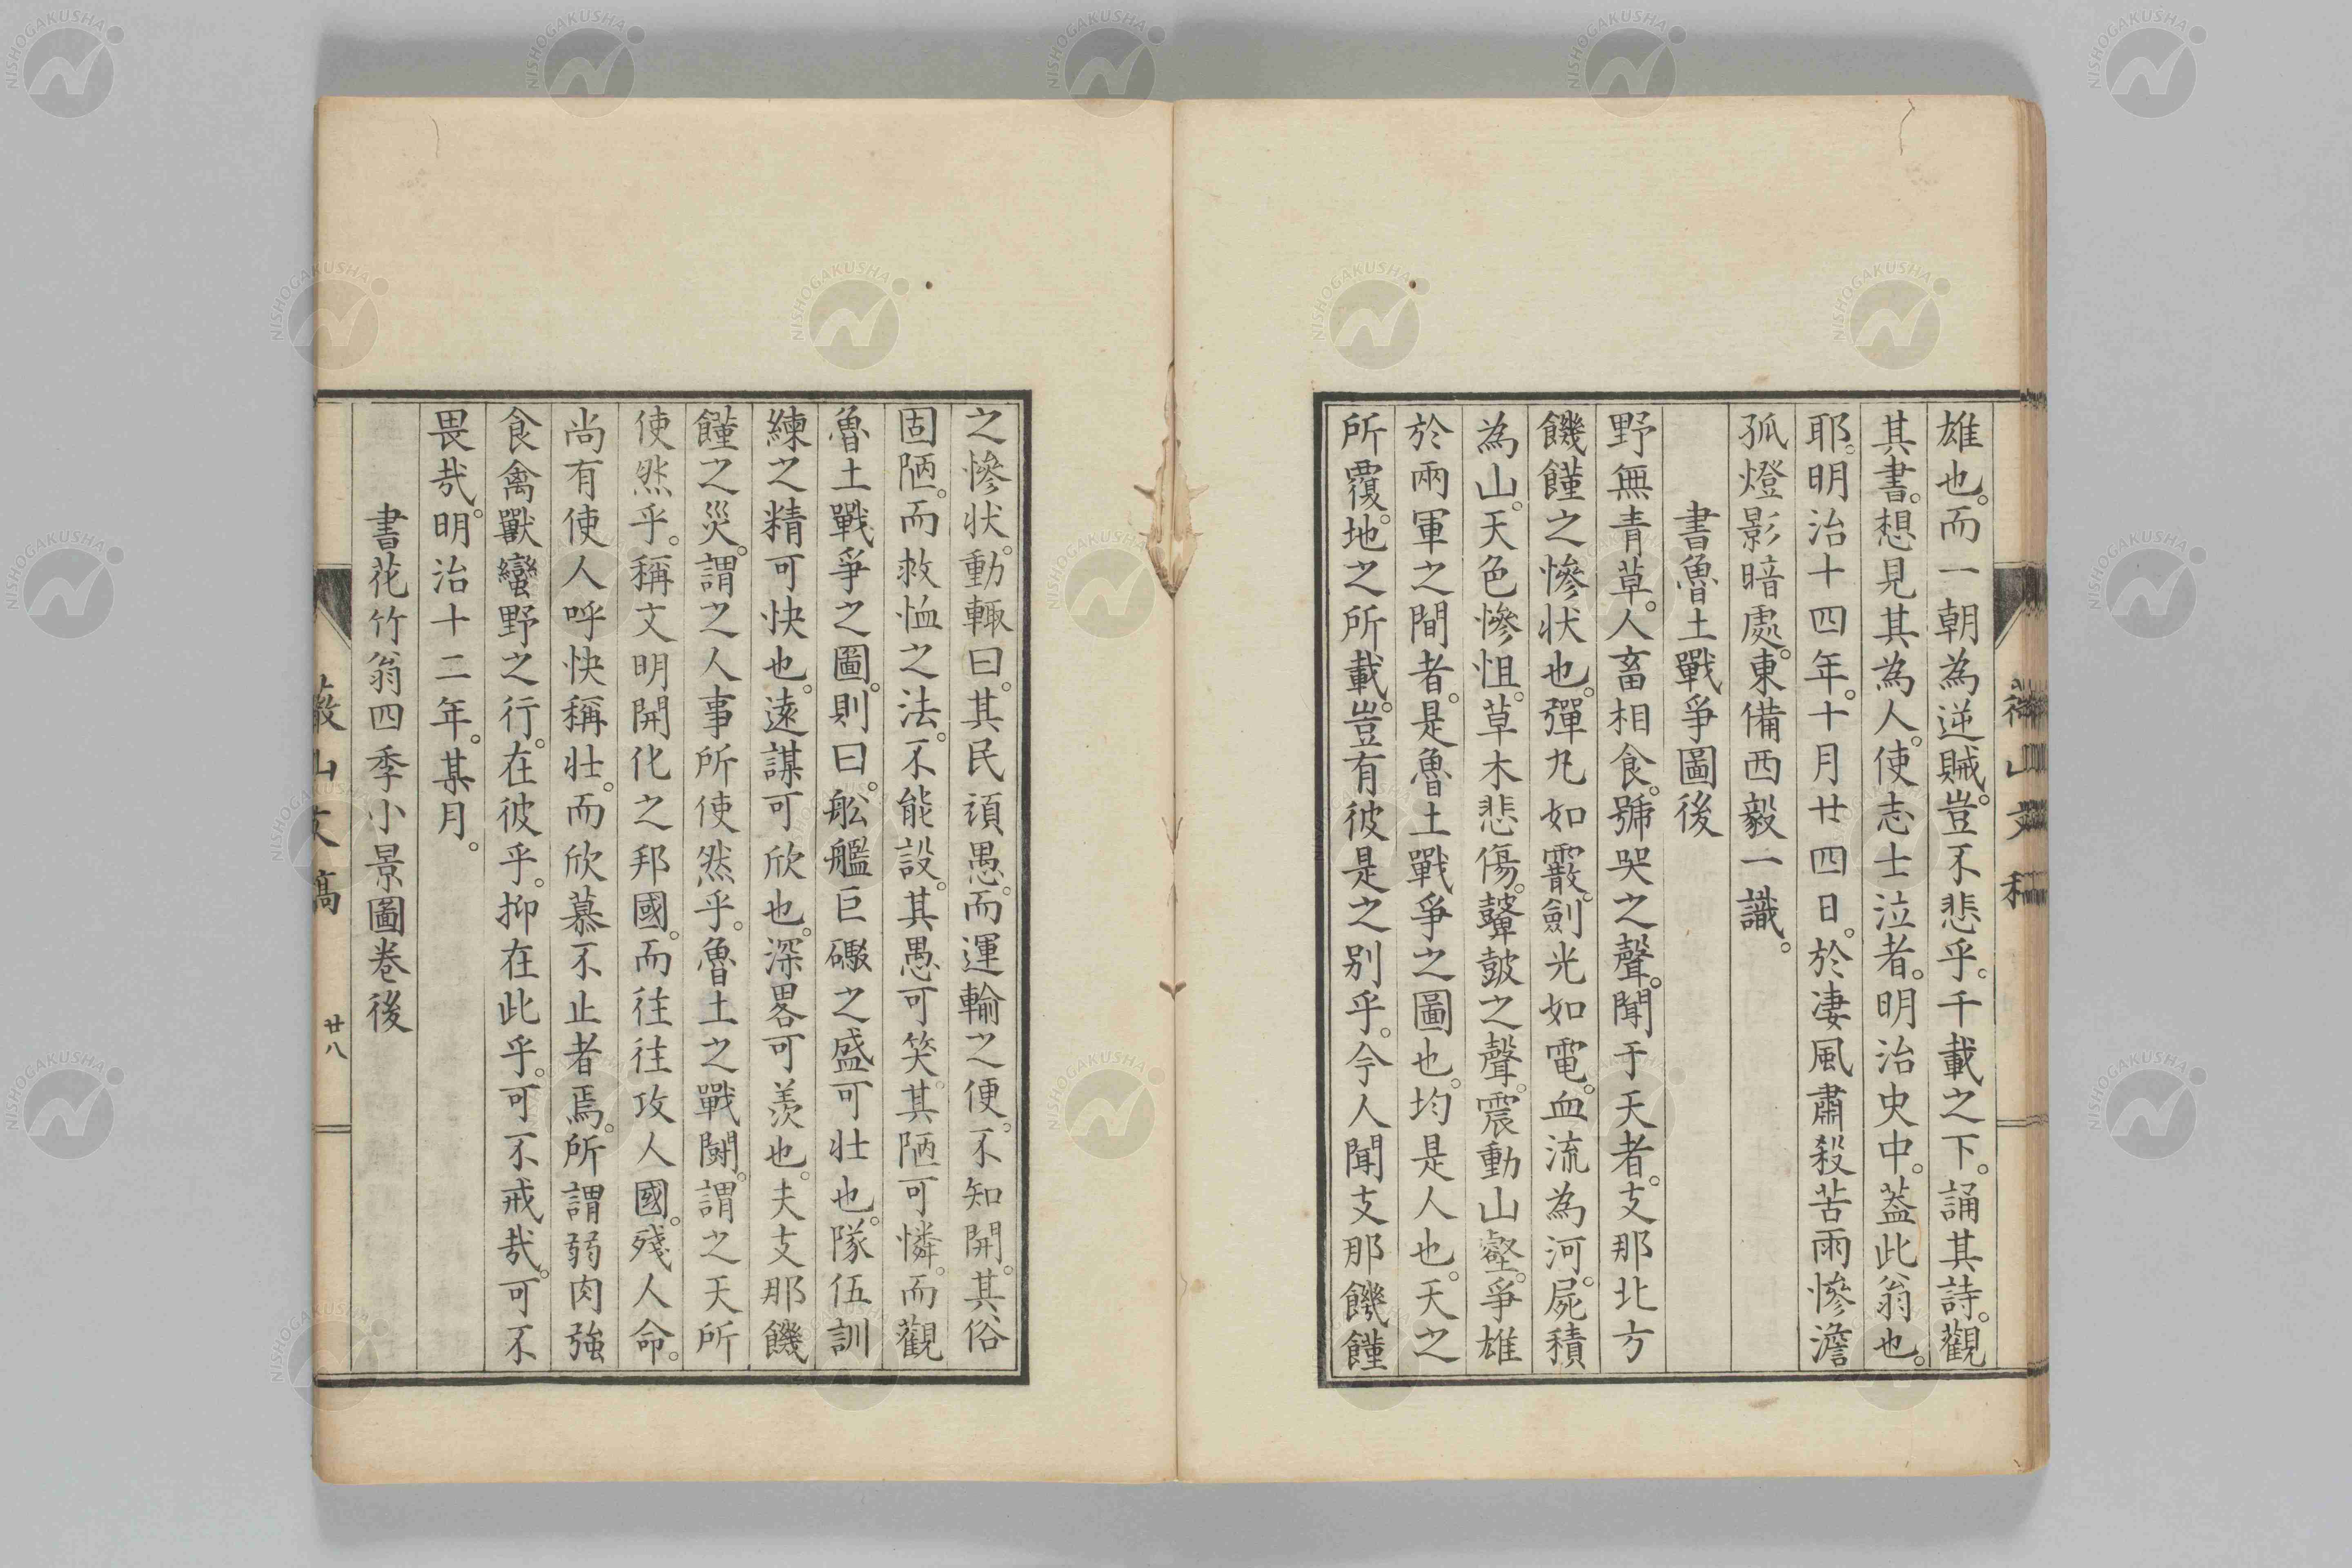 雄也。而一朝為逆賊。豈不悲乎。千載之下。誦其詩。觀
其書。想見其為人。使志士泣者。明治史中。葢此翁也。
耶。明治十四年。十月廿四日。於凄風肅殺苦雨慘澹
孤燈影暗處。東備西毅一識。
書魯土戰爭圖後
野無青草。人畜相食。號哭之聲。聞于天者。支那北方
饑饉之慘状也。彈丸如霰。劍光如電。血流為河。屍積
為山。天色慘怚。草木悲傷。鼙皷之聲。震動山壑。爭雄
於兩軍之間者。是魯土戰爭之圖也。均是人也。天之
所覆。地之所載。豈有彼是之別乎。今人聞支那饑饉
之慘状。動輙曰。其民頑愚。而運輸之便。不知開。其俗
固陋。而救恤之法。不能設。其愚可笑。其陋可憐。而觀
魯土戰爭之圖。則曰。舩艦巨礮之盛可壮也。隊伍訓
練之精可快也。遠謀可欣也。深畧可羨也。夫支那饑
饉之災。謂之人事所使然乎。魯土之戰鬪。謂之天所
使然乎。稱文明開化之邦國。而往往攻人國。殘人命。
尚有使人呼快稱壮。而欣慕不止者焉。所謂弱肉強
食禽獸蠻野之行。在彼乎。抑在此乎。可不戒哉。可不
畏哉。明治十二年。某月。
書花竹翁四季小景圖卷後
山文稿 廿八